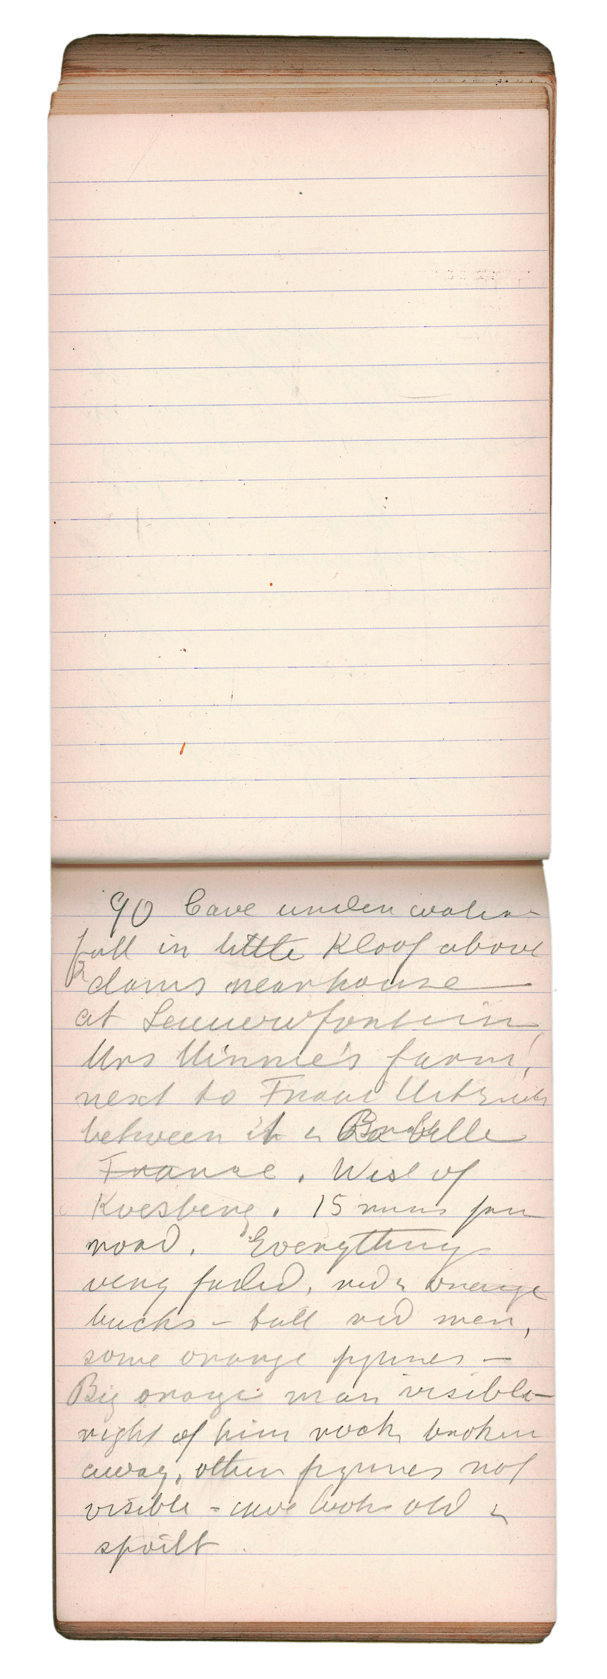 90 Cave under water-
fall in little Kloof above
2 dams near house
at Leeuwfontein,
Mrs Minnie's farm,
next to
between it &
France. West of
Koesberg. 15 mins from
road. Everything
very faded, red & orange
bucks - tall red men,
some orange figures -
Big orange man visible -
right of him rock broken
away, other figures not
visible - cave looks old &
spoilt.